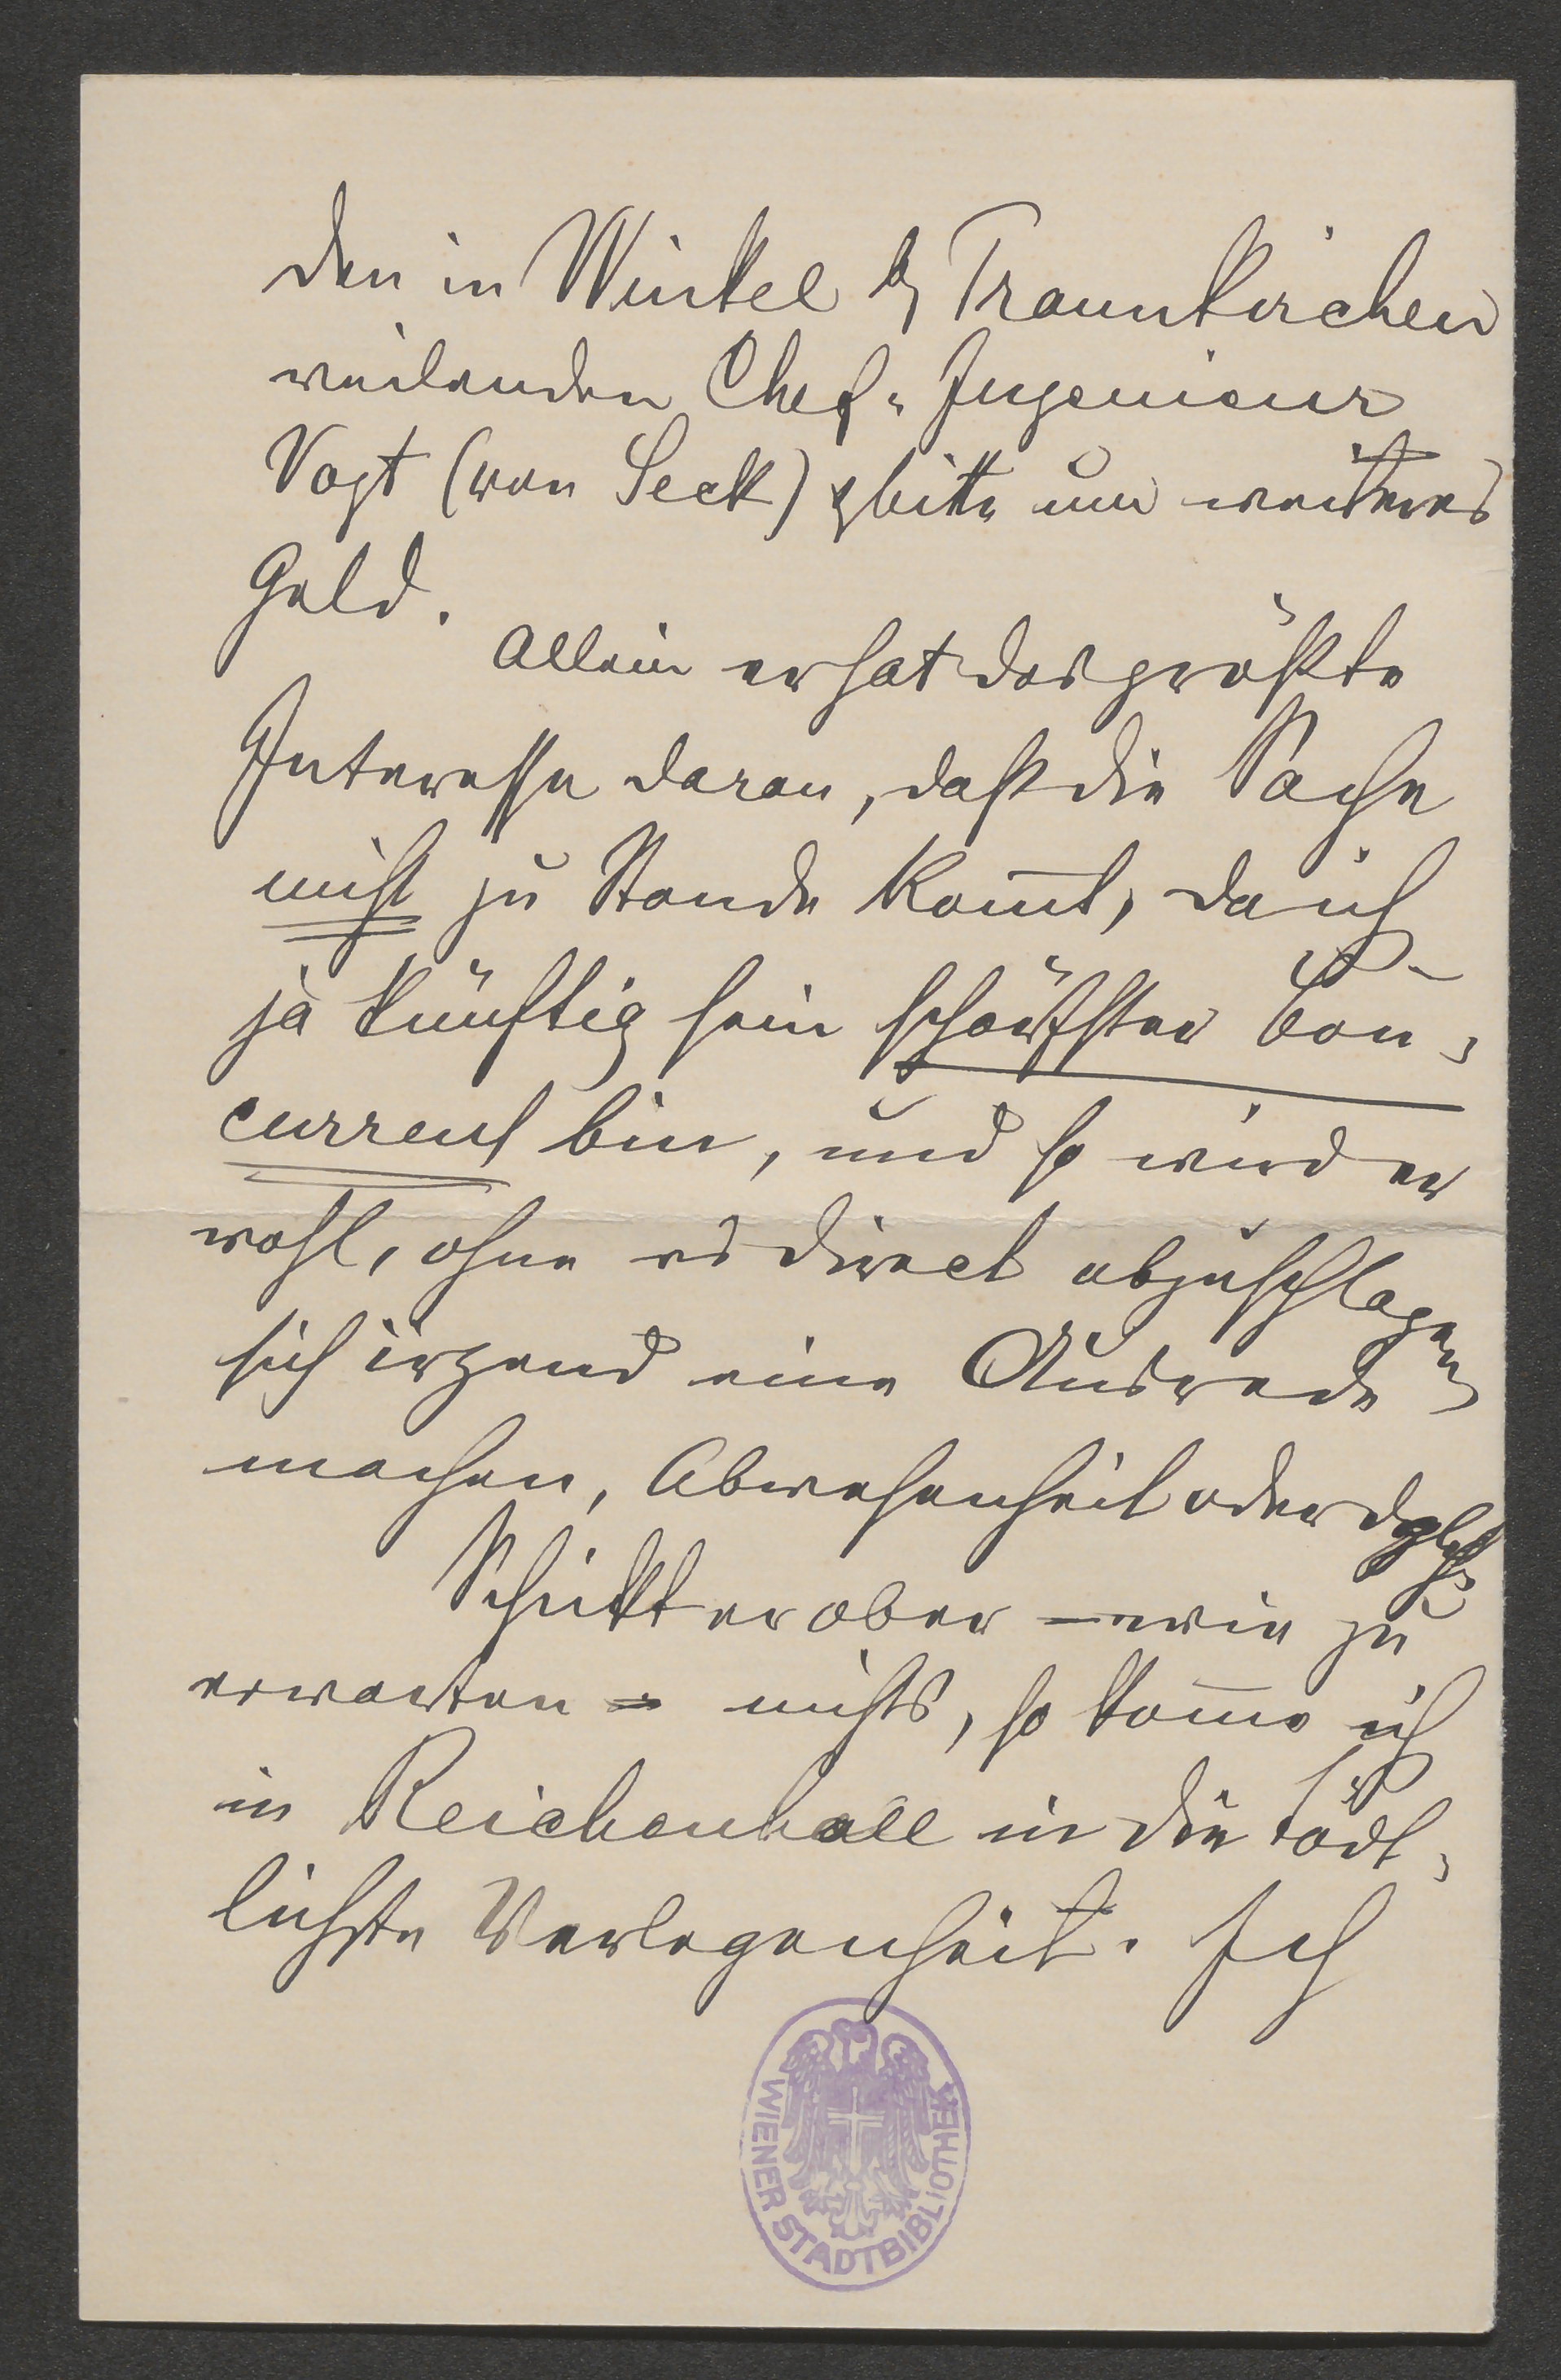 den in Winkel b/ Traunkirchen
weilenden Chef-Ingenieur
Vogt (von Seck) & bitte um weiteres
Geld.
Allein er hat das größte
Interesse daran, daß die Sache
nicht zu Stande kom̅t, da ich
ja künftig sein schärfster Con-
current bin, und so wird er
wohl, ohne es direct abzuschlagen
sich irgend eine Ausrede
machen, Abwesenheit oder dgl
Schickt er aber – wie zu
erwarten – nichts, so kom̅e ich
in Reichenhall in die tödt-
lichste Verlegenheit. Ich
WIENER STADTBIBLIOTHEK